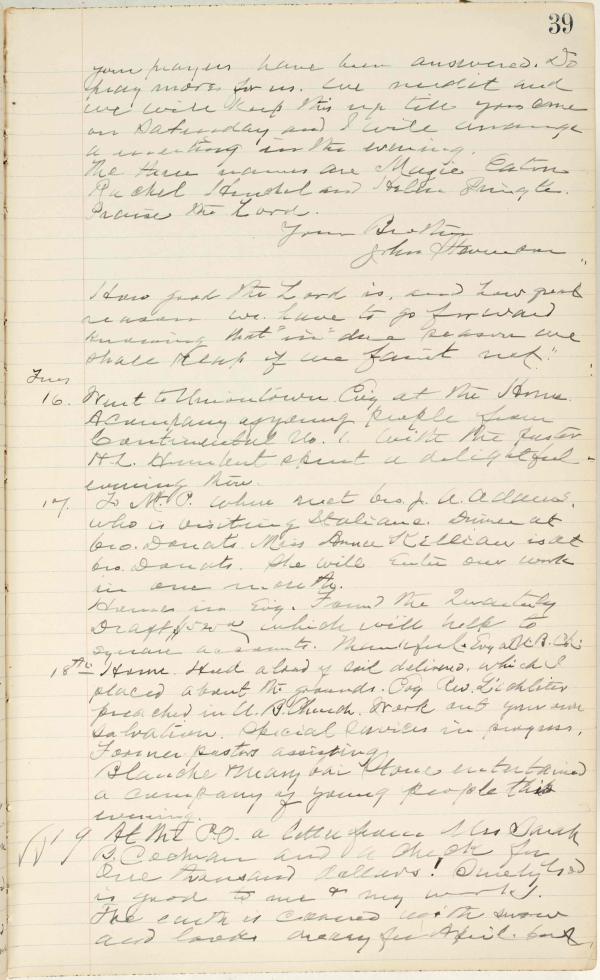 39
your prayers have been answered. Do
pray more for us. We need it and
we will keep this up till you come
on Saturday and I will arrange
a meeting in the evening.
The three names are Magie Eaton
Rachel and Helen Pringle.
Praise the Lord.
Your Brother
John
How good the Lord is, and how great
reason we have to go forward
knowing that "in due season we
shall reap if we faint not."
Tues
16. Went to Uniontown Evg at the Home.
A company of young people from
Continental No. 1 with the pastor
H. L. spent a delightful
evening there.
17. To Mt. P. where met bro. J. A. Adams,
who is visiting Italians. Dinner at
bro. Donats. Miss Anna Killian is at
bro. Donats. She will enter our work
in one month.
Home in Evg. Found the Quarterly
Draft which will help to
square accounts. Thankful. Evg at U. B. Ch.
18th Home. Had a load of soil delivered, which I
placed about the grounds. Evg Rev. Lichliter
preached in U. B. Church. Work out your own
salvation. Special services in progress,
Former pastors assisting.
Blanche & Mary our entertained
a company of young people this
evening.
19 At the P.O. a letter from Mrs Sarah
B. Cochran and a check for
One thousand dollars! Surely God
is good to me & my work.
The earth is covered with snow
and looks dreary for April. but